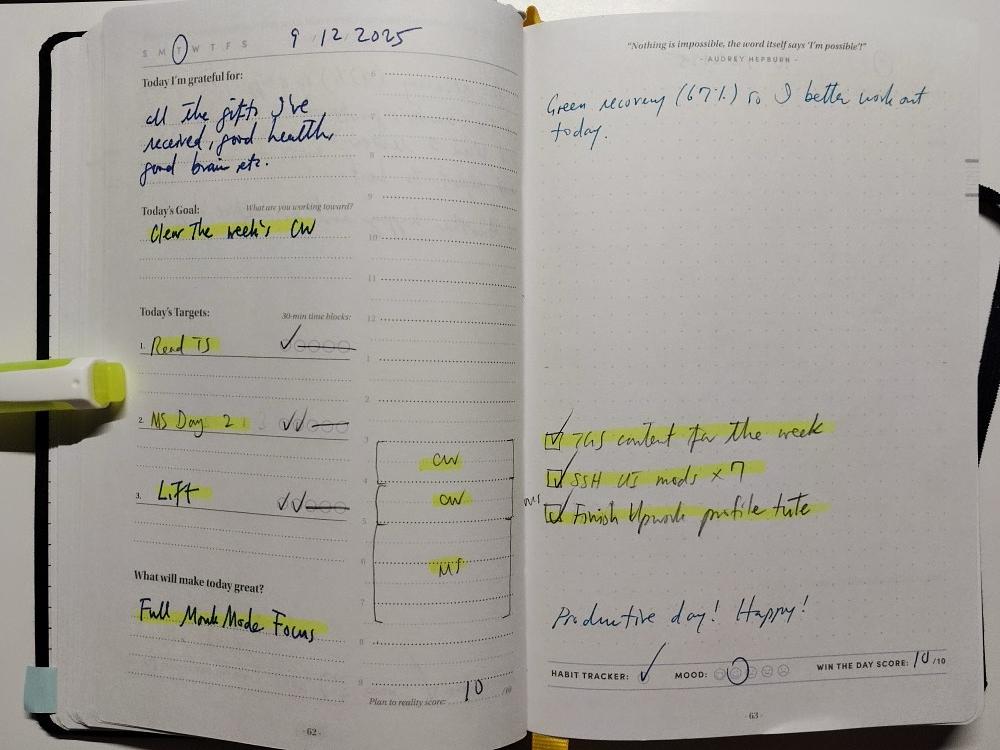 S M T W T F S 9 / 12 / 2025
Today I'm grateful for:
all the gifts I've
received, good health,
good brain etc.
Today's Goal: What are you working toward?
Clear The week's CW
Today's Targets: 30-min time blocks:
1. Read TS
2. MS Day 2
3. Lift
What will make today great?
Full Monk Mode Focus
6
7
8
9
10
11
12
1
2
3
CW
4
CW
5
6
MS
7
8
9
Plan to reality score: 10 /10
- 62 -
"Nothing is impossible, the word itself says 'I'm possible'!"
- AUDREY HEPBURN -
Green recovery (67%) so I better work out
today.
TGS content for the week
SSH UI mods x 7
Finish Upwork profile tute
Productive day! Happy!
HABIT TRACKER: ✓ MOOD: WIN THE DAY SCORE: 10 /10
- 63 -